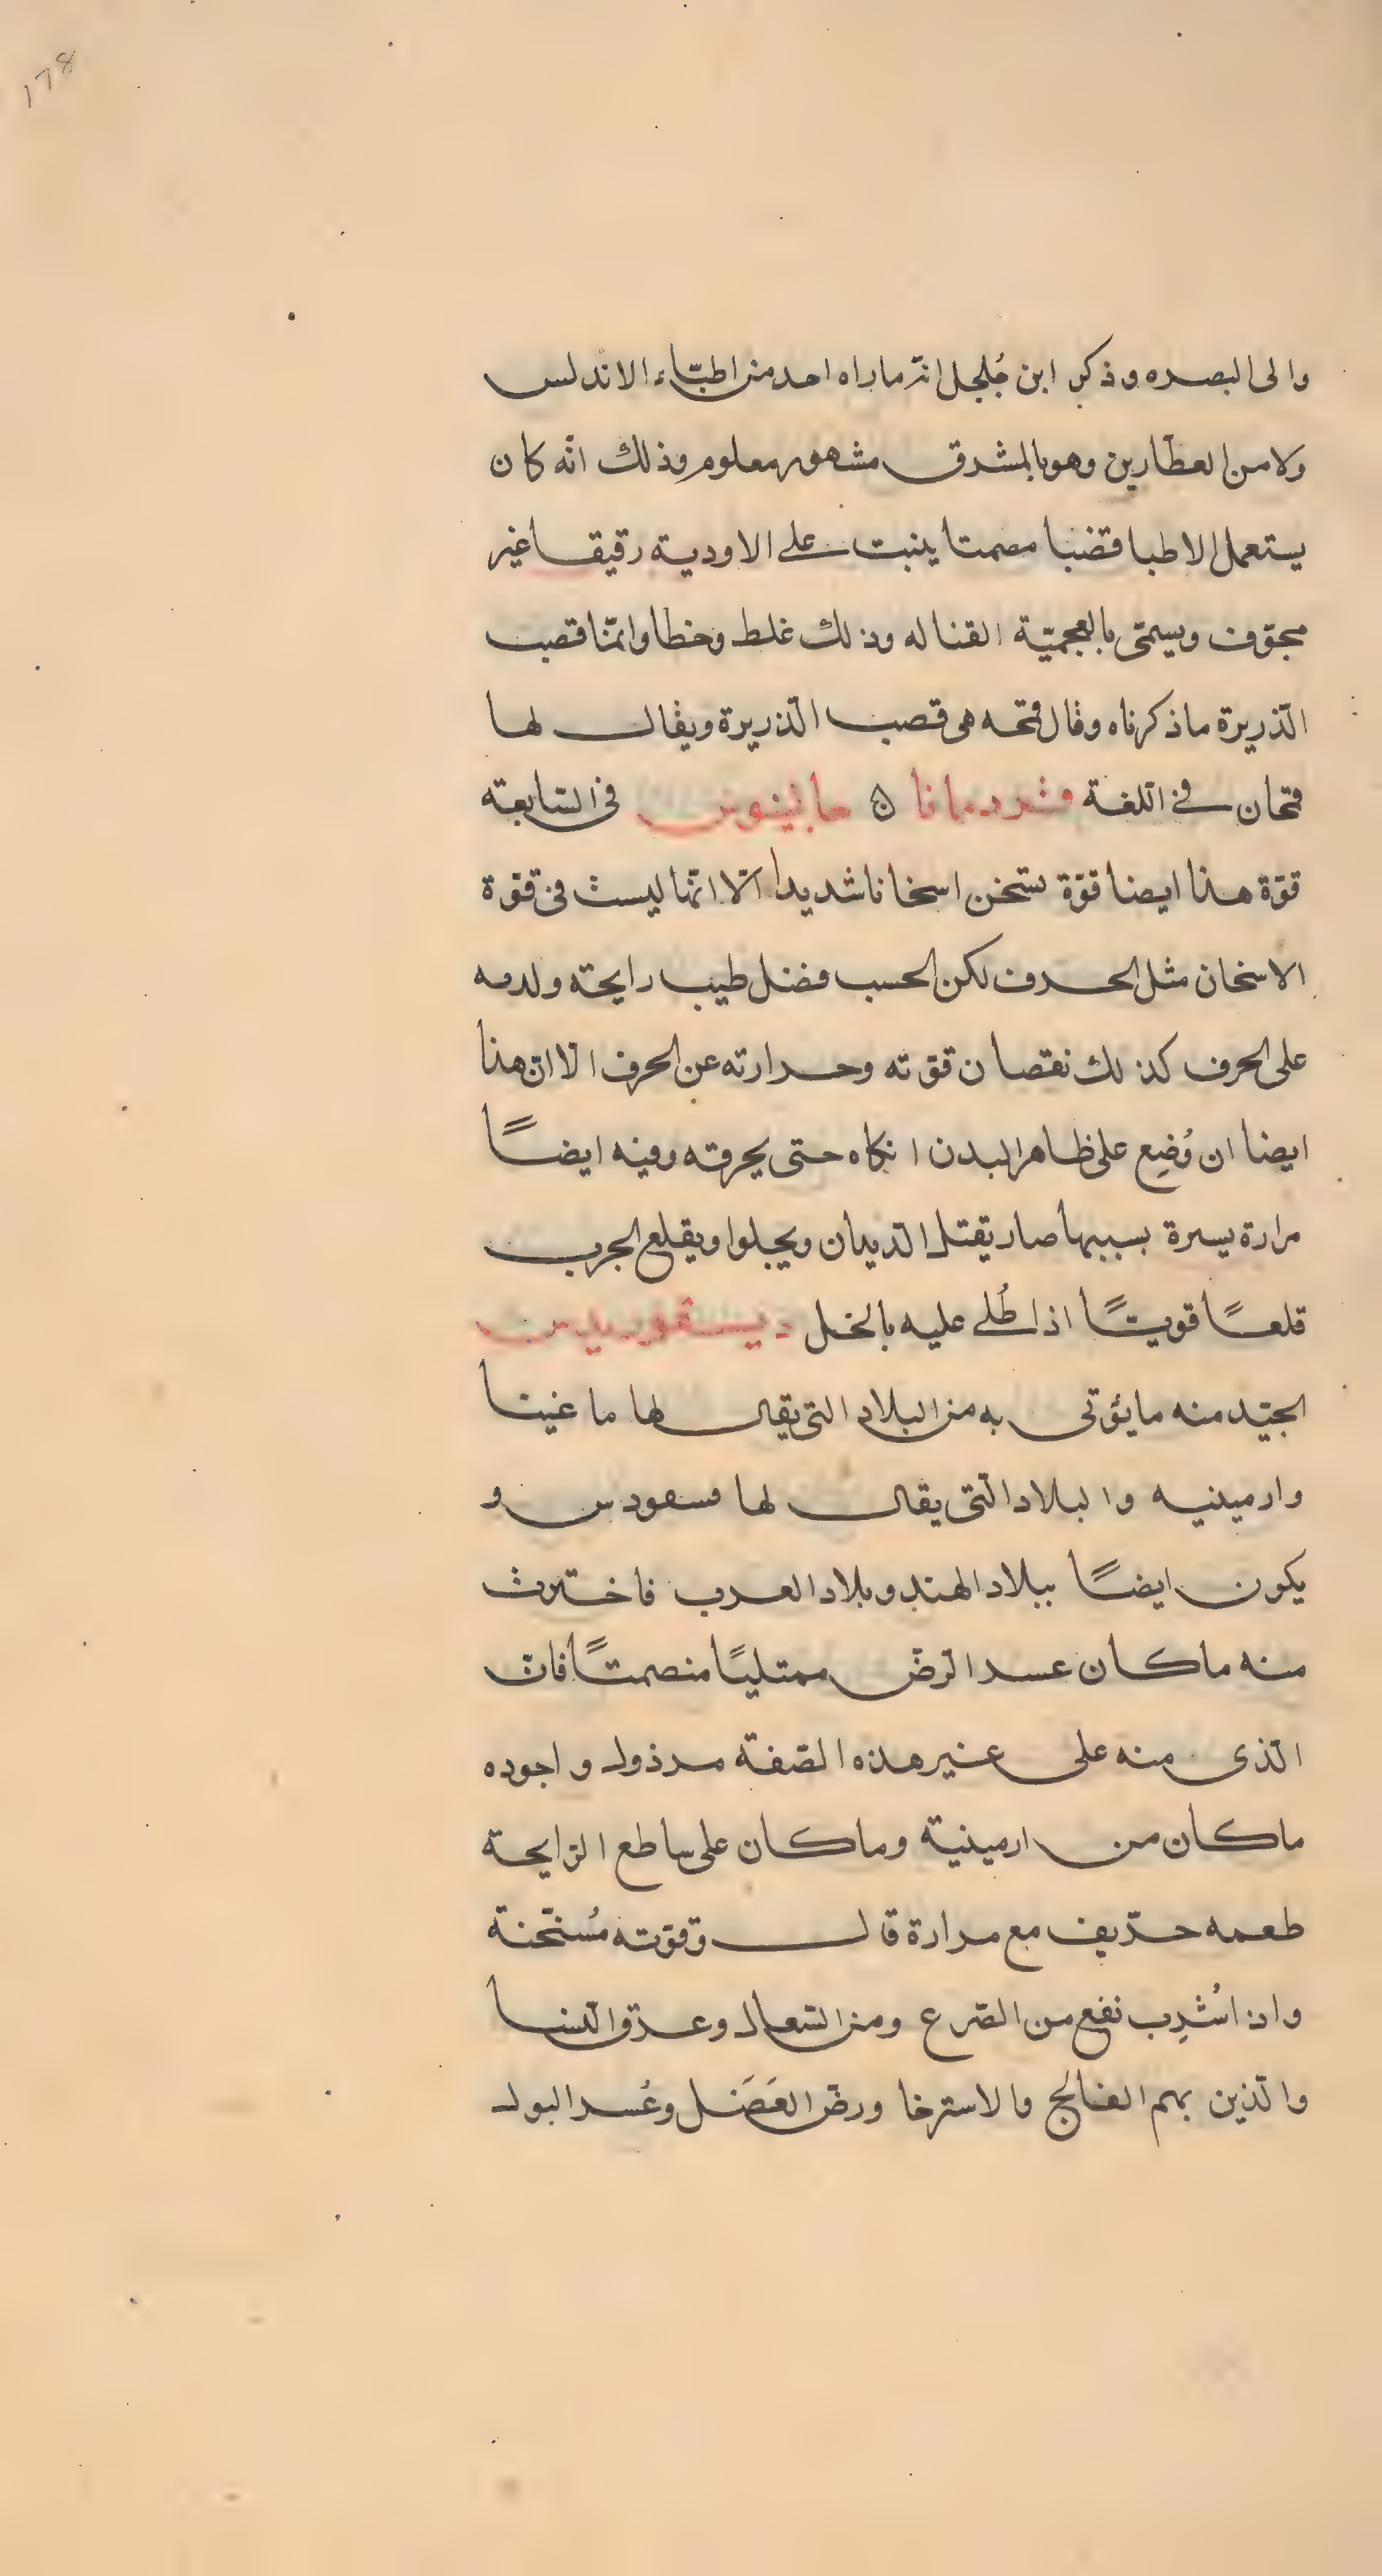 178
والى البصره وذكر ابن جُلجل انّه ماراه احد من اطبّاء الاندلس
ولا من العطّارين وهو بالمشرق مشهور معلوم وذلك انّه كان
يستعمل الاطبا قضبا مصمتا ينبت على الاودية رقيقا غير
مجوّف ويسمّى بالعجميّة القناله وذلك غلط وخطا وانمّا قصب
الذّريرة ما ذكرناه وقال قمحه هى قصب الذّريرة ويقال لها
قمحان فى اللّغة قردمانا ه جالينوس فى السّابعة
قوّة هذا ايضا قوّة تسخن اسخانا شديدا الّا انّها ليست فى قوّة
الاسخان مثل الحرف لكن الحسب فضل طيب رايحته ولدمه
على الحرف كذلك نقصان قوّته وحرارته عن الحرف الّا انّ هذا
ايضا ان وُضِع على ظاهر البدن انكاه حتى يحرقه وفيه ايضاً
مرارة يسرة بسببها صار يقتل الديدان ويجلوا ويقلع الجرب
قلعاً قويّاً اذا طُلى عليه بالخل ديسقوريدس
الجيّد منه ما يؤتى به من البلاد التى يقال لها ماغينا
وارمينيه والبلاد الّتى يقال لها مسعودس و
يكون ايضاً ببلاد الهند وبلاد العرب فاخترت
منه ما كان عسر الرضّ ممتلياً منصمتاً فانّ
الّذى منه على غير هذه الصّفة مرذول واجوده
ما كان من ارمينية وما كان على ساطع الرّايحة
طعمه حرّيف مع مرارة قال وقوّته مُسنّحنة
واذا شُرِب نفع من الصّرع ومن السّعال وعرق النّسا
والّذين بهم الفالج والاسترخا ورضّ العَضَل وعُسر البول